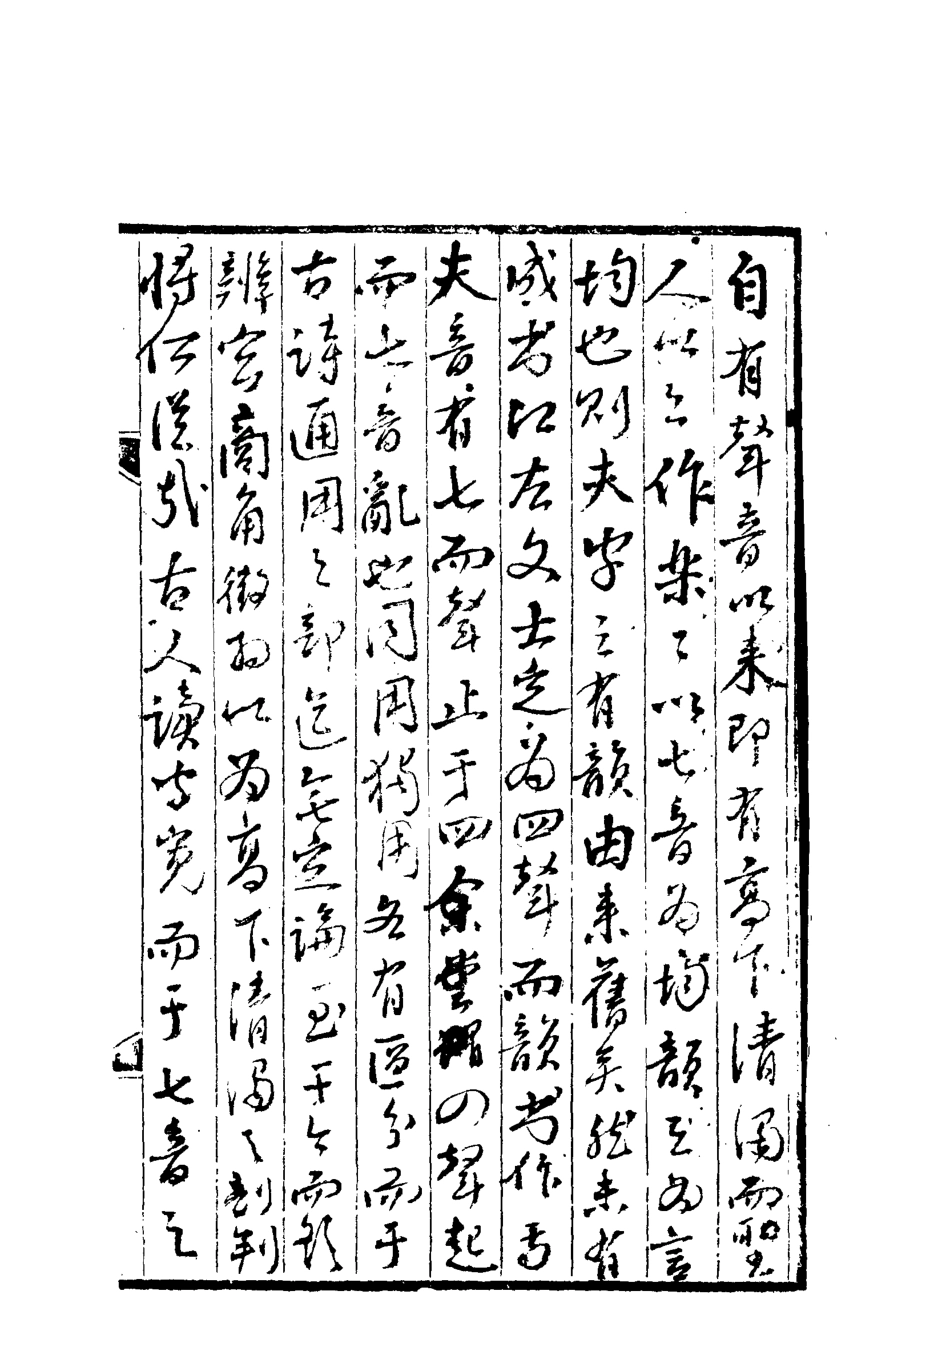 自有聲音以來即有高下清濁而聖
人以之作樂〻以七音為均韻之為言
均也則夫字之有韻由來舊矣然未有
成书江左文士定為四聲而韻书作焉
夫音有七而聲止于四余嘗謂四聲起
而七音亂也同用獨用各有區分而于
古詩通用之部迄無定論至于今而欲
辨宮商角徵羽以為高下清濁之剖判
將何從哉古人讀字寬而于七音之